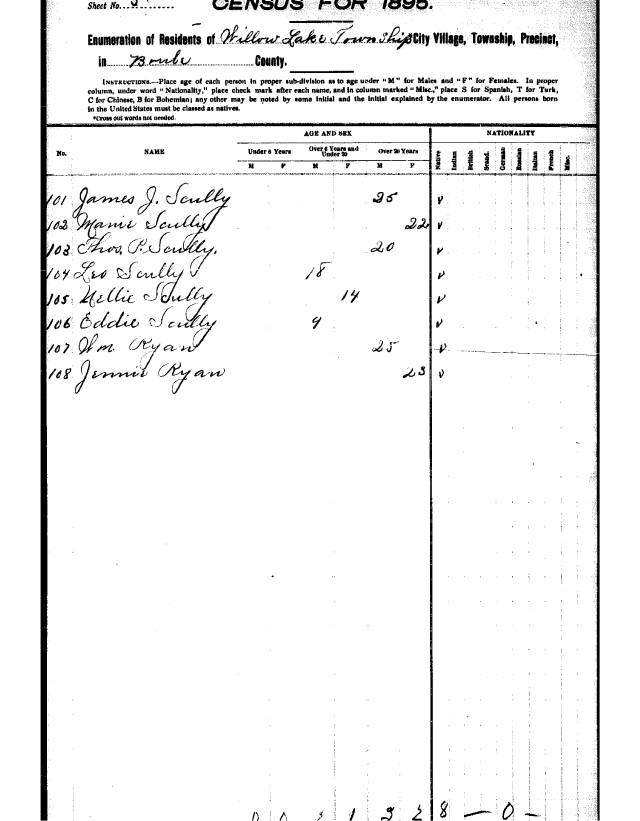 Sheet No.
CENSUS FOR 1895.
Enumeration of Residents of Willow Lake Township City Village, Township, Precinct,
in County.
INSTRUCTIONS.—Place age of each person in proper sub-division as to age under "M" for Males and "F" for Females. In proper
column, under word "Nationality," place check mark after each name, and in column marked "Misc.," place S for Spanish, T for Turk,
C for Chinese, B for Bohemian; any other may be noted by some initial and the initial explained by the enumerator. All persons born
in the United States must be classed as natives.
*Cross out words not needed.
AGE AND SEX NATIONALITY
No. NAME Under 5 Years Over 5 Years and Under 20 Over 20 Years Native Indian British Scand. German Russian Italian French Misc.
M F M F M F
101 James J. Scully 25 v
102 Mamie Scully 22 v
103 Thos. P. Scully. 20 v
104 Leo Scully 18 v
105 Nellie Scully 14 v
106 Eddie Scully 9 v
107 Wm. Ryan 25 v
108 Jennie Ryan 23 v
0 0 1 3 2 8 — 0 —